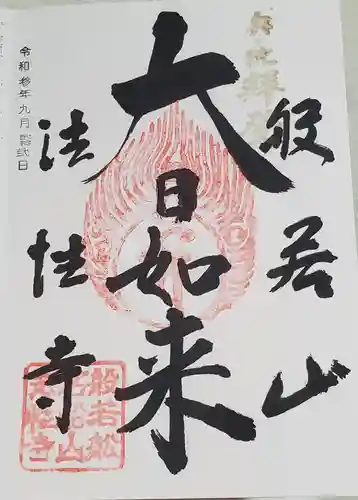 奉拝
般若山
大日如来
法性寺
令和参年九月拾弐日
般若船
若船山
法性寺